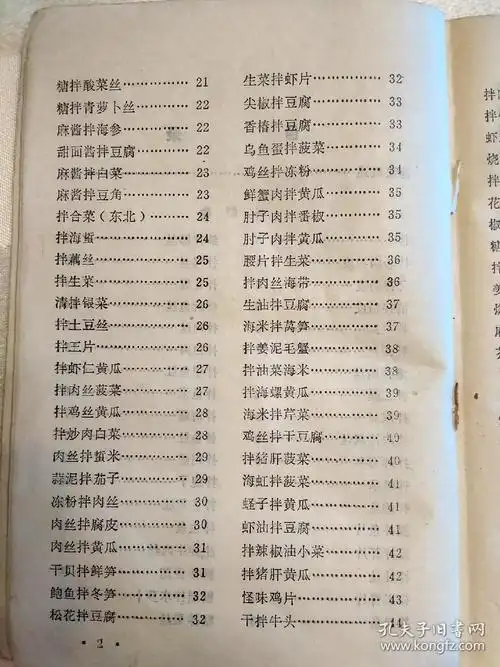 糖拌酸菜丝 21
糖拌青萝卜丝 22
麻酱拌海参 22
甜面酱拌豆腐 22
麻酱拌白菜 23
麻酱拌豆角 23
拌合菜（东北） 24
拌海蜇 24
拌藕丝 25
拌生菜 25
清拌银菜 26
拌土豆丝 26
拌三片 26
拌虾仁黄瓜 27
拌肉丝菠菜 27
拌鸡丝黄瓜 28
拌炒肉白菜 28
肉丝拌蜇米 29
蒜泥拌茄子 29
冻粉拌肉丝 30
肉丝拌腐皮 30
肉丝拌黄瓜 31
干贝拌鲜笋 31
鲍鱼拌冬笋 32
松花拌豆腐 32
生菜拌虾片 32
尖椒拌豆腐 33
香椿拌豆腐 33
乌鱼蛋拌菠菜 34
鸡丝拌冻粉 34
鲜蟹肉拌黄瓜 35
肘子肉拌番椒 35
肘子肉拌黄瓜 35
腰片拌生菜 36
拌肉丝海带 36
生油拌豆腐 37
海米拌莴笋 37
拌姜泥毛蟹 38
拌油菜海米 38
拌海螺黄瓜 39
海米拌芹菜 39
鸡丝拌干豆腐 40
拌猪肝菠菜 40
海虹拌菠菜 41
蛏子拌黄瓜 41
虾油拌豆腐 41
拌辣椒油小菜 42
拌猪肝黄瓜 42
怪味鸡片 43
干拌牛头 44
· 2 ·
拌
拌
虾
烧
拌
花
椒
糖
拌
姜
烧
孔夫子旧书网
www.kongfz.com